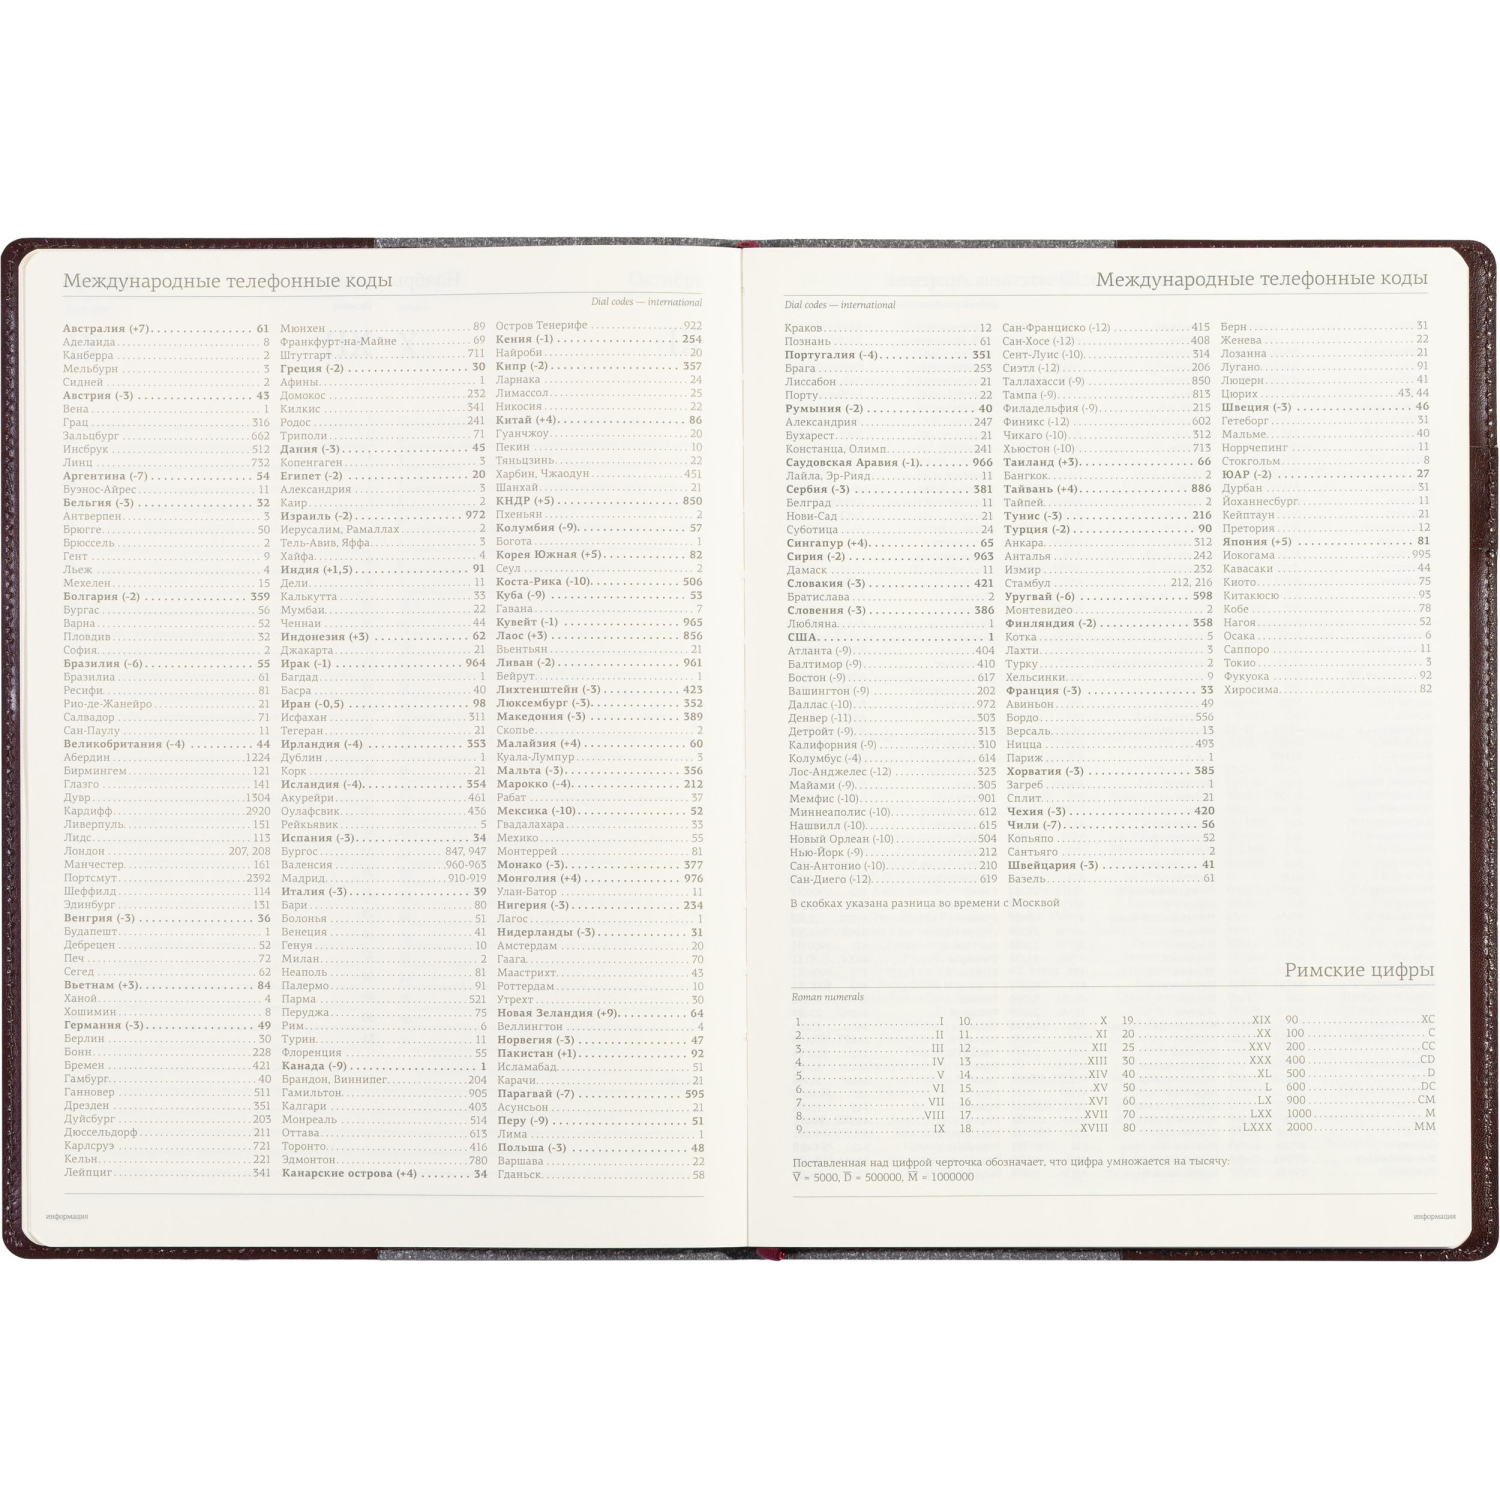 Международные телефонные коды
Dial codes — international
Австралия (+7) 61
Аделаида 8
Канберра 2
Мельбурн 3
Сидней 2
Австрия (-3) 43
Вена 1
Грац 316
Зальцбург 662
Инсбрук 512
Линц 732
Аргентина (-7) 54
Буэнос-Айрес 11
Бельгия (-3) 32
Антверпен 3
Брюгге 50
Брюссель 2
Гент 9
Льеж 4
Мехелен 15
Болгария (-2) 359
Бургас 56
Варна 52
Пловдив 32
София 2
Бразилия (-6) 55
Бразилиа 61
Ресифи 81
Рио-де-Жанейро 21
Салвадор 71
Сан-Паулу 11
Великобритания (-4) 44
Абердин 1224
Бирмингем 121
Глазго 141
Дувр 1304
Кардифф 2920
Ливерпуль 151
Лидс 113
Лондон 207, 208
Манчестер 161
Портсмут 2392
Шеффилд 114
Эдинбург 131
Венгрия (-3) 36
Будапешт 1
Дебрецен 52
Печ 72
Сегед 62
Вьетнам (+3) 84
Ханой 4
Хошимин 8
Германия (-3) 49
Берлин 30
Бонн 228
Бремен 421
Гамбург 40
Ганновер 511
Дрезден 351
Дуйсбург 203
Дюссельдорф 211
Карлсруэ 721
Кельн 221
Лейпциг 341
Мюнхен 89
Франкфурт-на-Майне 69
Штутгарт 711
Греция (-2) 30
Афины 1
Домокос 232
Килкис 341
Родос 241
Триполи 71
Дания (-3) 45
Копенгаген 3
Египет (-2) 20
Александрия 3
Каир 2
Израиль (-2) 972
Иерусалим, Рамаллах 2
Тель-Авив, Яффа 3
Хайфа 4
Индия (+1,5) 91
Дели 11
Калькутта 33
Мумбаи 22
Ченнаи 44
Индонезия (+3) 62
Джакарта 21
Ирак (-1) 964
Багдад 1
Басра 40
Иран (-0,5) 98
Исфахан 311
Тегеран 21
Ирландия (-4) 353
Дублин 1
Корк 21
Исландия (-4) 354
Акурейри 461
Оулафсвик 436
Рейкьявик 5
Испания (-3) 34
Бургос 847, 947
Валенсия 960-963
Мадрид 910-919
Италия (-3) 39
Бари 80
Болонья 51
Венеция 41
Генуя 10
Милан 2
Неаполь 81
Палермо 91
Парма 521
Перуджа 75
Рим 6
Турин 11
Флоренция 55
Канада (-9) 1
Брандон, Виннипег 204
Гамильтон 905
Калгари 403
Монреаль 514
Оттава 613
Торонто 416
Эдмонтон 780
Канарские острова (+4) 34
Остров Тенерифе 922
Кения (-1) 254
Найроби 20
Кипр (-2) 357
Ларнака 24
Лимассол 25
Никосия 22
Китай (+4) 86
Гуанчжоу 20
Пекин 10
Тяньцзинь 22
Харбин, Чжаодун 451
Шанхай 21
КНДР (+5) 850
Пхеньян 2
Колумбия (-9) 57
Богота 1
Корея Южная (+5) 82
Сеул 2
Коста-Рика (-10) 506
Куба (-9) 53
Гавана 7
Кувейт (-1) 965
Лаос (+3) 856
Вьентьян 21
Ливан (-2) 961
Бейрут 1
Лихтенштейн (-3) 423
Люксембург (-3) 352
Македония (-3) 389
Скопье 2
Малайзия (+4) 60
Куала-Лумпур 3
Мальта (-3) 356
Марокко (-4) 212
Рабат 37
Мексика (-10) 52
Гвадалахара 33
Мехико 55
Монтеррей 81
Монако (-3) 377
Монголия (+4) 976
Улан-Батор 11
Нигерия (-3) 234
Лагос 1
Нидерланды (-3) 31
Амстердам 20
Гаага 70
Маастрихт 43
Роттердам 10
Утрехт 30
Новая Зеландия (+9) 64
Веллингтон 4
Норвегия (-3) 47
Пакистан (+1) 92
Исламабад 51
Карачи 21
Парагвай (-7) 595
Асунсьон 21
Перу (-9) 51
Лима 1
Польша (-3) 48
Варшава 22
Гданьск 58
информация
Международные телефонные коды
Dial codes — international
Краков 12
Познань 61
Португалия (-4) 351
Брага 253
Лиссабон 21
Порту 22
Румыния (-2) 40
Александрия 247
Бухарест 21
Констанца, Олимп 241
Саудовская Аравия (-1) 966
Лайла, Эр-Рияд 11
Сербия (-3) 381
Белград 11
Нови-Сад 21
Суботица 24
Сингапур (+4) 65
Сирия (-2) 963
Дамаск 11
Словакия (-3) 421
Братислава 2
Словения (-3) 386
Любляна 1
США 1
Атланта (-9) 404
Балтимор (-9) 410
Бостон (-9) 617
Вашингтон (-9) 202
Даллас (-10) 972
Денвер (-11) 303
Детройт (-9) 313
Калифорния (-9) 310
Колумбус (-4) 614
Лос-Анджелес (-12) 323
Майами (-9) 305
Мемфис (-10) 901
Миннеаполис (-10) 612
Нашвилл (-10) 615
Новый Орлеан (-10) 504
Нью-Йорк (-9) 212
Сан-Антонио (-10) 210
Сан-Диего (-12) 619
Сан-Франциско (-12) 415
Сан-Хосе (-12) 408
Сент-Луис (-10) 314
Сиэтл (-12) 206
Таллахасси (-9) 850
Тампа (-9) 813
Филадельфия (-9) 215
Финикс (-12) 602
Чикаго (-10) 312
Хьюстон (-10) 713
Таиланд (+3) 66
Бангкок 2
Тайвань (+4) 886
Тайпей 2
Тунис (-3) 216
Турция (-2) 90
Анкара 312
Анталья 242
Измир 232
Стамбул 212, 216
Уругвай (-6) 598
Монтевидео 2
Финляндия (-2) 358
Котка 5
Лахти 3
Турку 2
Хельсинки 9
Франция (-3) 33
Авиньон 49
Бордо 556
Версаль 13
Ницца 493
Париж 1
Хорватия (-3) 385
Загреб 1
Сплит 21
Чехия (-3) 420
Чили (-7) 56
Копьяпо 52
Сантьяго 2
Швейцария (-3) 41
Базель 61
Берн 31
Женева 22
Лозанна 21
Лугано 91
Люцерн 41
Цюрих 43, 44
Швеция (-3) 46
Гетеборг 31
Мальме 40
Норрчепинг 11
Стокгольм 8
ЮАР (-2) 27
Дурбан 31
Йоханнесбург 11
Кейптаун 21
Претория 12
Япония (+5) 81
Иокогама 995
Кавасаки 44
Киото 75
Китакюсю 93
Кобе 78
Нагоя 52
Осака 6
Саппоро 11
Токио 3
Фукуока 92
Хиросима 82
В скобках указана разница во времени с Москвой
Римские цифры
Roman numerals
1 I
2 II
3 III
4 IV
5 V
6 VI
7 VII
8 VIII
9 IX
10 X
11 XI
12 XII
13 XIII
14 XIV
15 XV
16 XVI
17 XVII
18 XVIII
19 XIX
20 XX
25 XXV
30 XXX
40 XL
50 L
60 LX
70 LXX
80 LXXX
90 XC
100 C
200 CC
400 CD
500 D
600 DC
900 CM
1000 M
2000 MM
Поставленная над цифрой черточка обозначает, что цифра умножается на тысячу:
V̅ = 5000, D̅ = 500000, M̅ = 1000000
информация